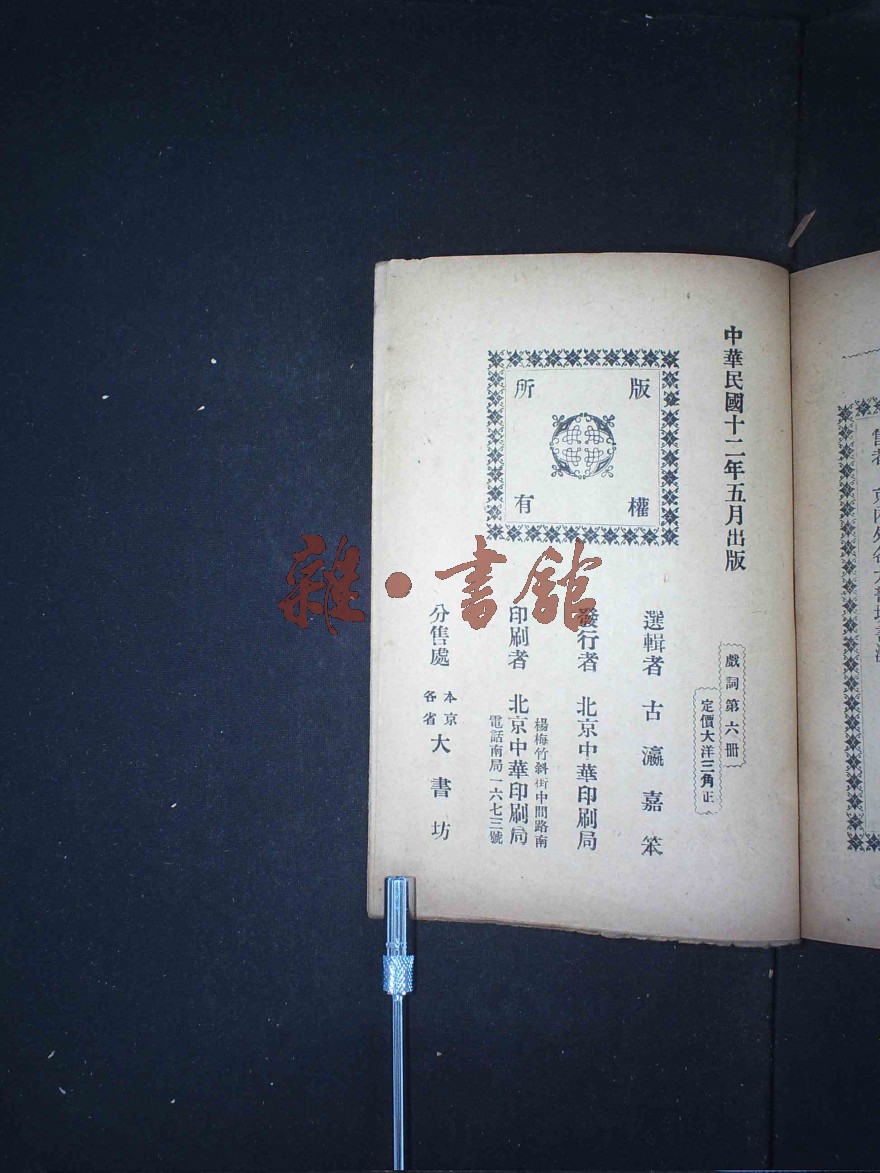 中華民國十二年五月出版
版權所有
戲詞第六冊
定價大洋三角正
選輯者 古瀛嘉笨
發行者 北京中華印刷局
楊梅竹斜街中間路南
印刷者 北京中華印刷局
電話南局一六七三號
分售處 本京各省大書坊
雜·書館